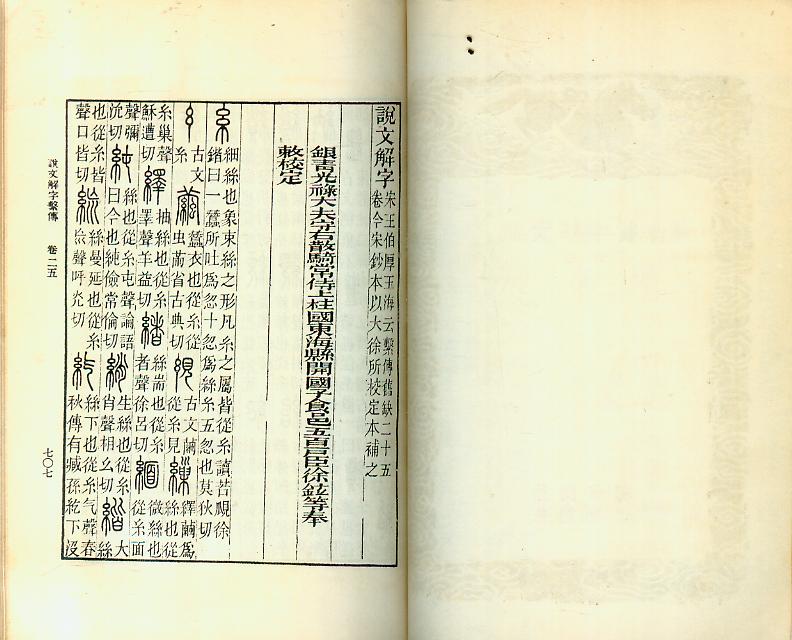 說文解字
宋王伯厚玉海云繫傳舊缺二十五
卷今宋鈔本以大徐所校定本補之
銀青光祿大夫守右散騎常侍上柱國東海縣開國子食邑五百戶臣徐鉉等奉
敕校定
糸細絲也象束絲之形凡糸之屬皆從糸讀若覛徐鍇曰一蠶所吐為忽十忽為絲糸五忽也莫狄切
古文糸繭蠶衣也從糸從虫黹省古典切絸古文繭從糸見繅繹繭為絲也從
糸巢聲穌遭切繹抽絲也從糸睪聲羊益切緒絲耑也從糸者聲徐呂切緬微絲也從糸面
聲彌沇切純絲也從糸屯聲論語曰今也純儉常倫切綃生絲也從糸肖聲相幺切緒大絲
也從糸皆聲口皆切絲曼延也從糸㠩聲呼光切紇絲下也從糸气聲春秋傳有臧孫紇下沒
說文解字繫傳 卷二五
七〇七